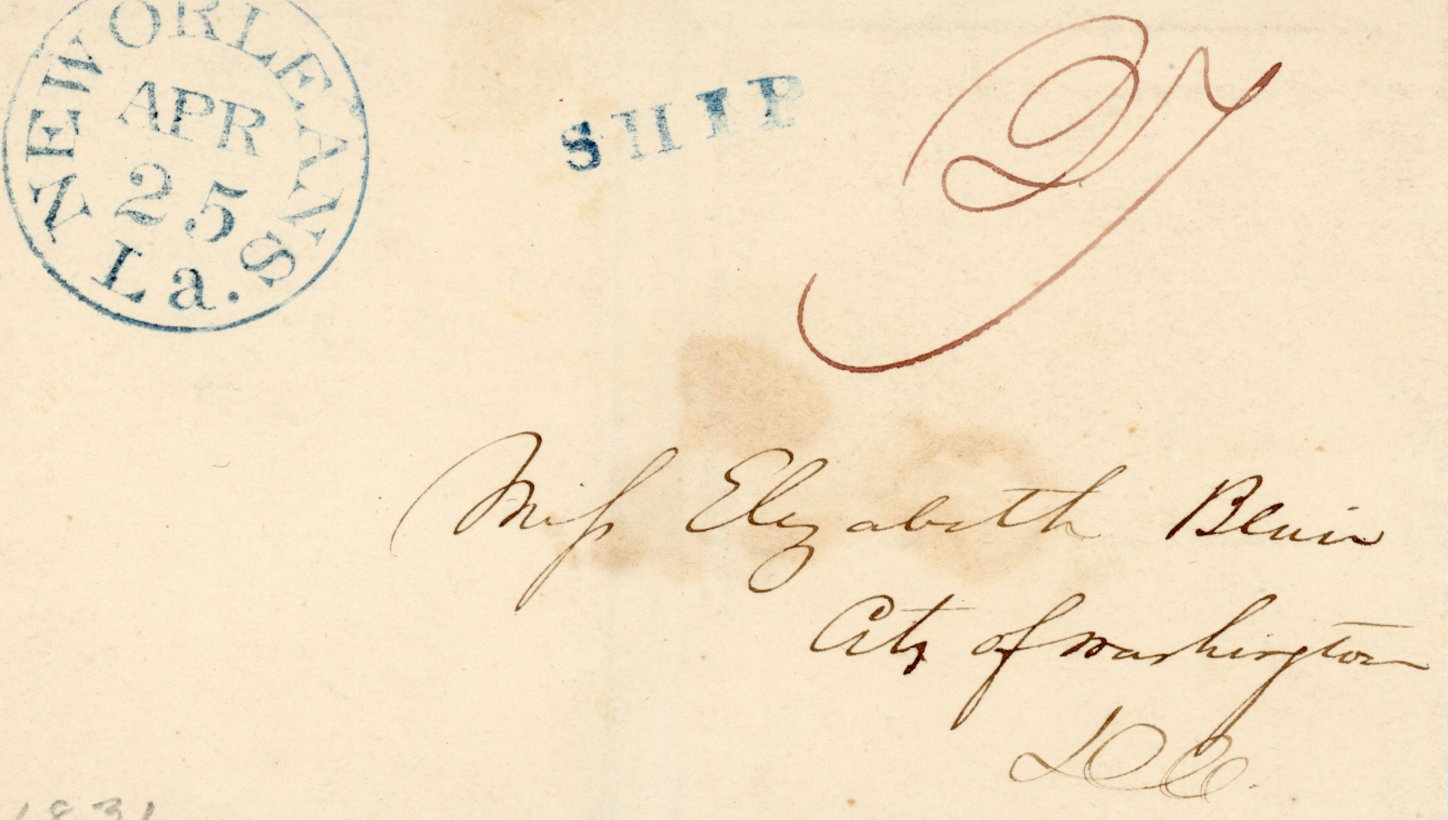 NEW ORLEANS
La.
APR
25
SHIP
27
Miss Elizabeth Blair
City of Washington
D C
1831